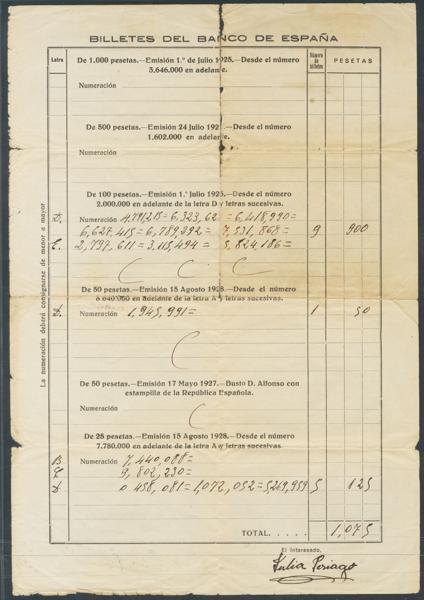 BILLETES DEL BANCO DE ESPAÑA
Letra
Número de billetes
PESETAS
De 1.000 pesetas.—Emisión 1.º de Julio 1925.—Desde el número
3.646.000 en adelante.
Numeración
De 500 pesetas.—Emisión 24 Julio 1927.—Desde el número
1.602.000 en adelante.
Numeración
De 100 pesetas.—Emisión 1.º Julio 1925.—Desde el número
2.000.000 en adelante de la letra D y letras sucesivas.
Numeración 4.791,215 = 6,323,62 = 6,418,990 =
6,627,415 = 6,789,292 = 7,531,868 = 9 900
C. 2,797,611 = 3,115,494 = 5,824,186 =
De 50 pesetas.—Emisión 15 Agosto 1928.—Desde el número
6.640.000 en adelante de la letra A y letras sucesivas.
Numeración 1,945,991 = 1 50
De 50 pesetas.—Emisión 17 Mayo 1927.—Busto D. Alfonso con
estampilla de la República Española.
Numeración
De 25 pesetas.—Emisión 15 Agosto 1928.—Desde el número
7.780.000 en adelante de la letra A y letras sucesivas.
B Numeración 7,440,088 =
9,802,230 =
0 458,081 = 1,072,052 = 5,269,959 5 125
TOTAL. . . . . 1,075
El interesado,
Julia Periago
La numeración deberá consignarse de menor a mayor